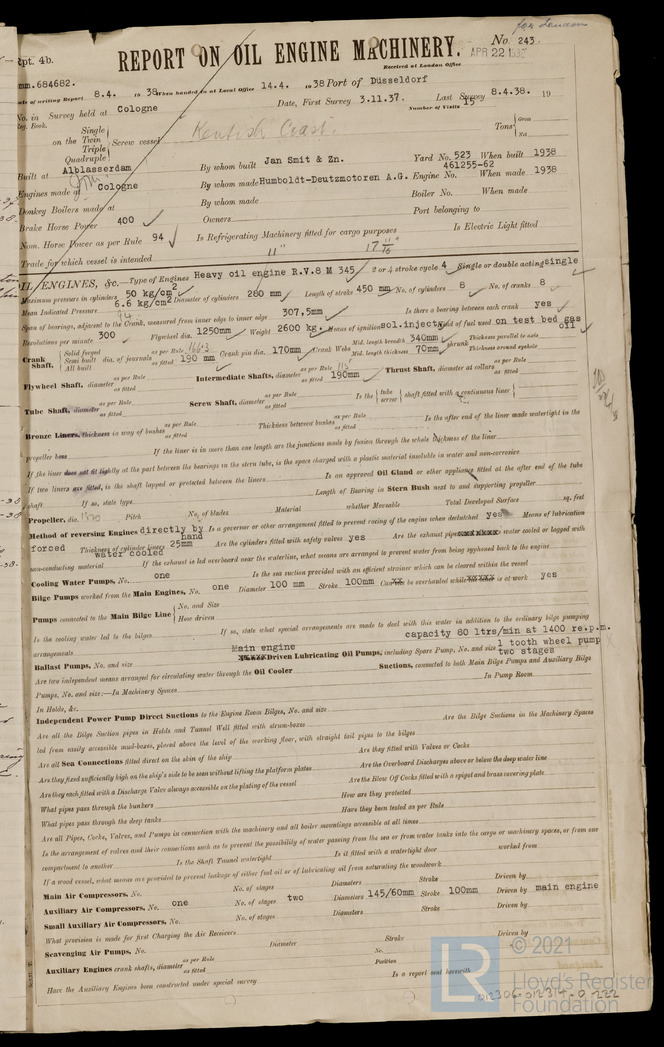 for London
Rpt. 4b.
No. 243.
REPORT ON OIL ENGINE MACHINERY.
APR 22 1938
Received at London Office
mm.684682.
Date of writing Report 8.4. 19 38. When handed in at Local Office 14.4. 19 38 Port of Düsseldorf
No. in Survey held at Cologne Date, First Survey 3.11.37. Last Survey 8.4.38. 19
Reg. Book. Number of Visits 15
on the Single Twin Triple Quadruple Screw vessel Kentish Coast. Tons Gross Net
Built at Alblasserdam By whom built Jan Smit & Zn. Yard No. 523 When built 1938
Engines made at Cologne By whom made Humboldt-Deutzmotoren A.G. Engine No. 461255-62 When made 1938
Donkey Boilers made at By whom made Boiler No. When made
Brake Horse Power 400 Owners Port belonging to
Nom. Horse Power as per Rule 94 Is Refrigerating Machinery fitted for cargo purposes Is Electric Light fitted
Trade for which vessel is intended 11" 17 11/16"
OIL ENGINES, &c.—Type of Engines Heavy oil engine R.V.8 M 345 2 or 4 stroke cycle 4 Single or double acting single
Maximum pressure in cylinders 50 kg/cm2 Diameter of cylinders 280 mm Length of stroke 450 mm No. of cylinders 8 No. of cranks 8
Mean Indicated Pressure 6.6 kg/cm2
Span of bearings, adjacent to the Crank, measured from inner edge to inner edge 307,5mm Is there a bearing between each crank yes
Revolutions per minute 300 Flywheel dia. 1250mm Weight 2600 kg. Means of ignition sol.inject. Kind of fuel used on test bed gas oil
Crank Shaft, Solid forged Semi built All built dia. of journals as per Rule 166.3 as fitted 190 mm Crank pin dia. 170mm Crank Webs Mid. length breadth 340mm Mid. length thickness 70mm shrunk Thickness parallel to axis Thickness around eyehole
Flywheel Shaft, diameter as per Rule as fitted Intermediate Shafts, diameter as per Rule 115 as fitted 190mm Thrust Shaft, diameter at collars as per Rule as fitted
Tube Shaft, diameter as per Rule as fitted Screw Shaft, diameter as per Rule as fitted Is the tube screw shaft fitted with a continuous liner
Bronze Liners, thickness in way of bushes as per Rule as fitted Thickness between bushes as per Rule as fitted Is the after end of the liner made watertight in the
propeller boss If the liner is in more than one length are the junctions made by fusion through the whole thickness of the liner
If the liner does not fit tightly at the part between the bearings in the stern tube, is the space charged with a plastic material insoluble in water and non-corrosive
If two liners are fitted, is the shaft lapped or protected between the liners Is an approved Oil Gland or other appliance fitted at the after end of the tube
shaft If so, state type Length of Bearing in Stern Bush next to and supporting propeller
Propeller, dia. Pitch No. of blades Material whether Moveable Total Developed Surface sq. feet
Method of reversing Engines directly by hand Is a governor or other arrangement fitted to prevent racing of the engine when declutched yes Means of lubrication
forced Thickness of cylinder liners 25mm Are the cylinders fitted with safety valves yes Are the exhaust pipes water cooled or lagged with
non-conducting material water cooled If the exhaust is led overboard near the waterline, what means are arranged to prevent water from being syphoned back to the engine
Cooling Water Pumps, No. one Is the sea suction provided with an efficient strainer which can be cleared within the vessel
Bilge Pumps worked from the Main Engines, No. one Diameter 100 mm Stroke 100mm Can be overhauled while is at work yes
Pumps connected to the Main Bilge Line No. and Size How driven
Is the cooling water led to the bilges If so, state what special arrangements are made to deal with this water in addition to the ordinary bilge pumping
arrangements capacity 80 ltrs/min at 1400 re.p.m.
Ballast Pumps, No. and size Main engine Driven Lubricating Oil Pumps, including Spare Pump, No. and size 1 tooth wheel pump two stages
Are two independent means arranged for circulating water through the Oil Cooler Suctions, connected to both Main Bilge Pumps and Auxiliary Bilge
Pumps, No. and size:—In Machinery Spaces In Pump Room
In Holds, &c.
Independent Power Pump Direct Suctions to the Engine Room Bilges, No. and size
Are all the Bilge Suction pipes in Holds and Tunnel Well fitted with strum-boxes Are the Bilge Suctions in the Machinery Spaces
led from easily accessible mud-boxes, placed above the level of the working floor, with straight tail pipes to the bilges
Are all Sea Connections fitted direct on the skin of the ship Are they fitted with Valves or Cocks
Are they fixed sufficiently high on the ship's side to be seen without lifting the platform plates Are the Overboard Discharges above or below the deep water line
Are they each fitted with a Discharge Valve always accessible on the plating of the vessel Are the Blow Off Cocks fitted with a spigot and brass covering plate
What pipes pass through the bunkers How are they protected
What pipes pass through the deep tanks Have they been tested as per Rule
Are all Pipes, Cocks, Valves, and Pumps in connection with the machinery and all boiler mountings accessible at all times
Is the arrangement of valves and their connections such as to prevent the possibility of water passing from the sea or from water tanks into the cargo or machinery spaces, or from one
compartment to another Is the Shaft Tunnel watertight Is it fitted with a watertight door worked from
If a wood vessel, what means are provided to prevent leakage of either fuel oil or of lubricating oil from saturating the woodwork
Main Air Compressors, No. No. of stages Diameters Stroke Driven by
Auxiliary Air Compressors, No. one No. of stages two Diameters 145/60mm Stroke 100mm Driven by main engine
Small Auxiliary Air Compressors, No. No. of stages Diameters Stroke Driven by
What provision is made for first Charging the Air Receivers
Scavenging Air Pumps, No. Diameter Stroke Driven by
Auxiliary Engines crank shafts, diameter as per Rule as fitted No. Position
Have the Auxiliary Engines been constructed under special survey Is a report sent herewith
LR © 2021
Lloyd's Register
Foundation
012306-012314-0222